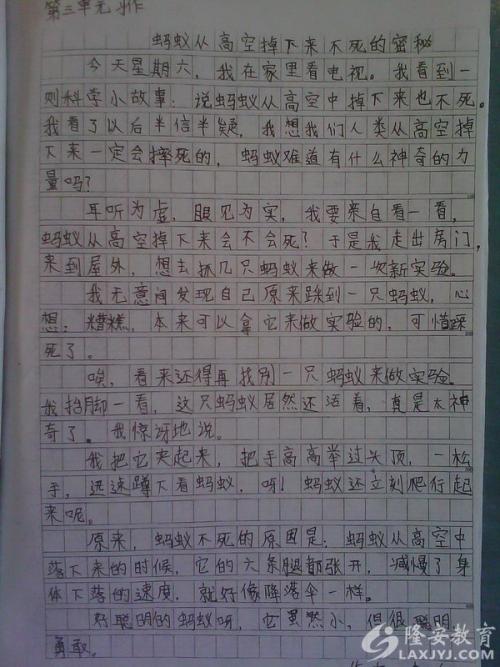 第三单元习作
蚂蚁从高空掉下来不死的密秘
今天星期六，我在家里看电视。我看到一
则科学小故事：说蚂蚁从高空中掉下来也不死。
我看了以后半信半疑，我想我们人类从高空掉
下来一定会摔死的，蚂蚁难道有什么神奇的力
量吗？
耳听为虚，眼见为实，我要亲自看一看，
蚂蚁从高空掉下来会不会死？于是我走出房门，
来到屋外，想去抓几只蚂蚁来做一次新实验。
我无意间发现自己原来踩到一只蚂蚁，心
想：糟糕，本来可以拿它来做实验的，可惜踩
死了。
唉，看来还得再找别一只蚂蚁来做实验。
我抬脚一看，这只蚂蚁居然还活着，真是太神
奇了。我惊讶地说。
我把它夹起来，把手高高举过头顶，一松
手，迅速蹲下看蚂蚁，呀！蚂蚁还立刻爬行起
来呢。
原来，蚂蚁不死的原因是：蚂蚁从高空中
落下来的时候，它的六条腿都张开，减慢了身
体下落的速度，就好像阵落伞一样。
好聪明的蚂蚁呀，它虽然小，但很聪明
勇敢。
隆安教育
LAXJY.COM